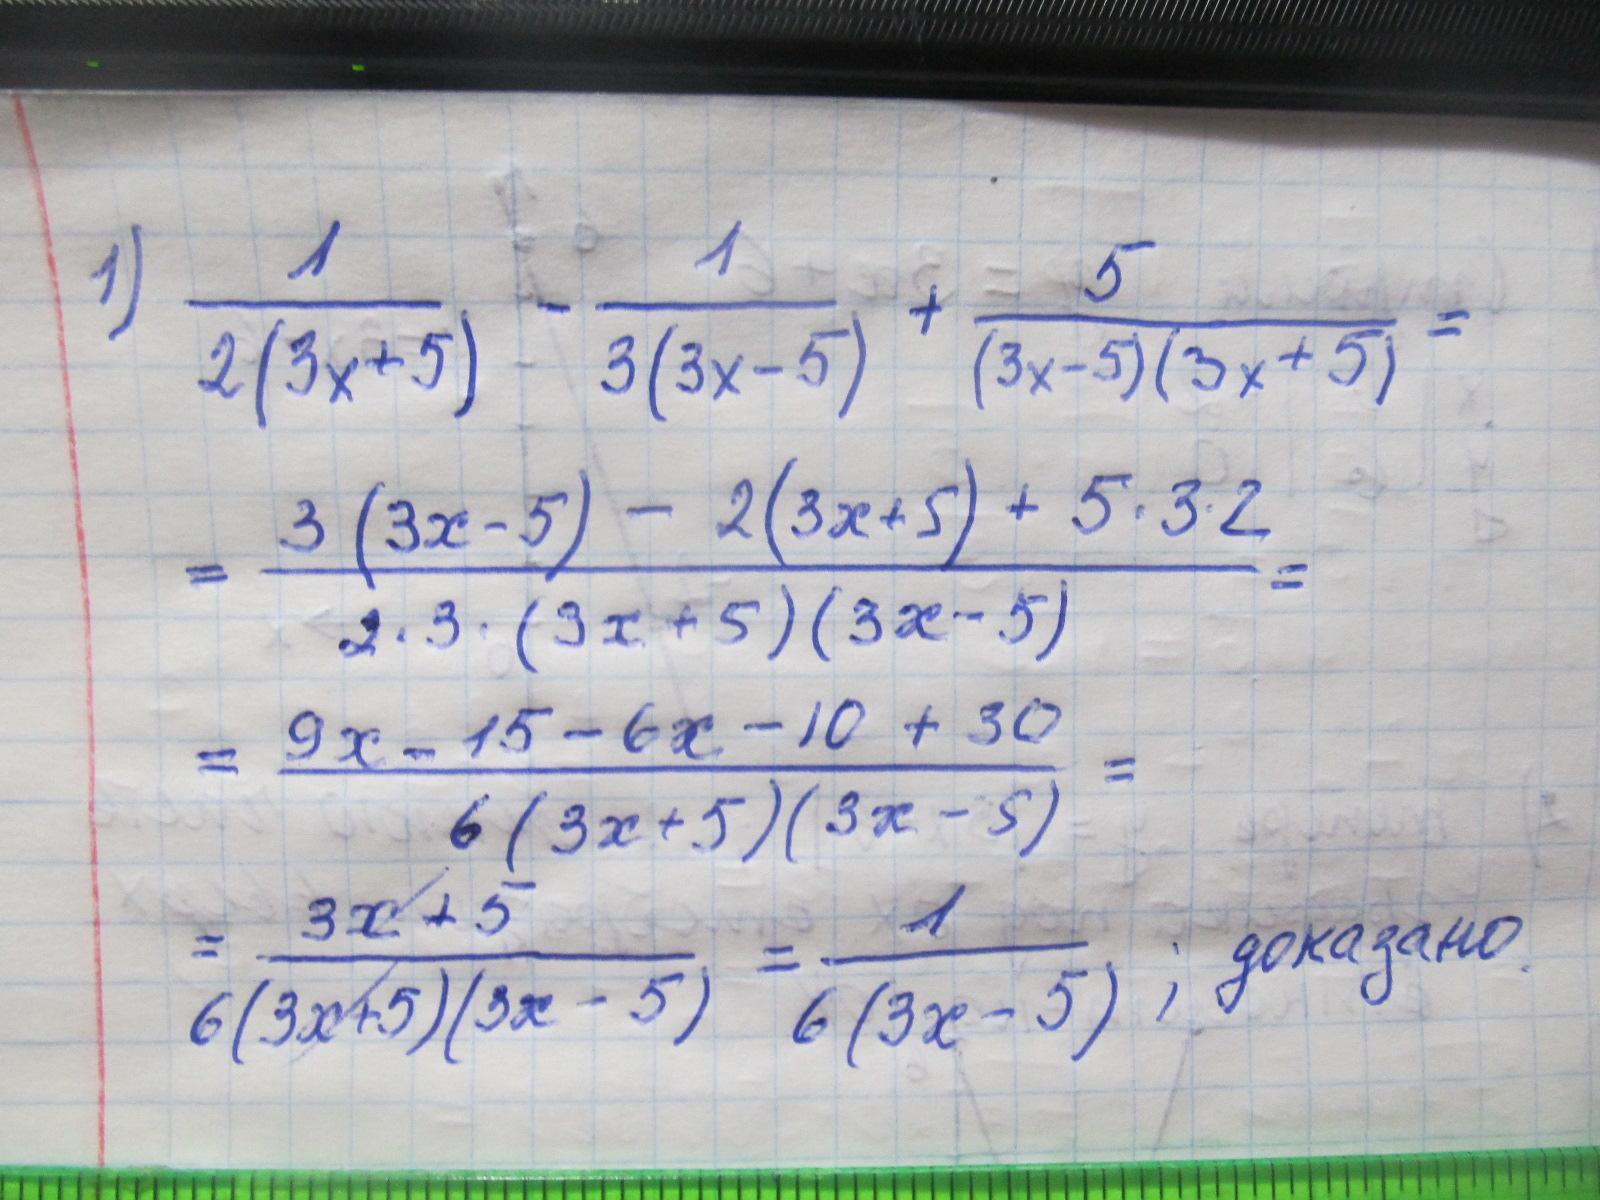 1) 1/(2(3x+5)) - 1/(3(3x-5)) + 5/((3x-5)(3x+5)) =
= (3(3x-5) - 2(3x+5) + 5·3·2)/(2·3·(3x+5)(3x-5)) =
= (9x-15-6x-10+30)/(6(3x+5)(3x-5)) =
= (3x+5)/(6(3x+5)(3x-5)) = 1/(6(3x-5)) ; доказано.